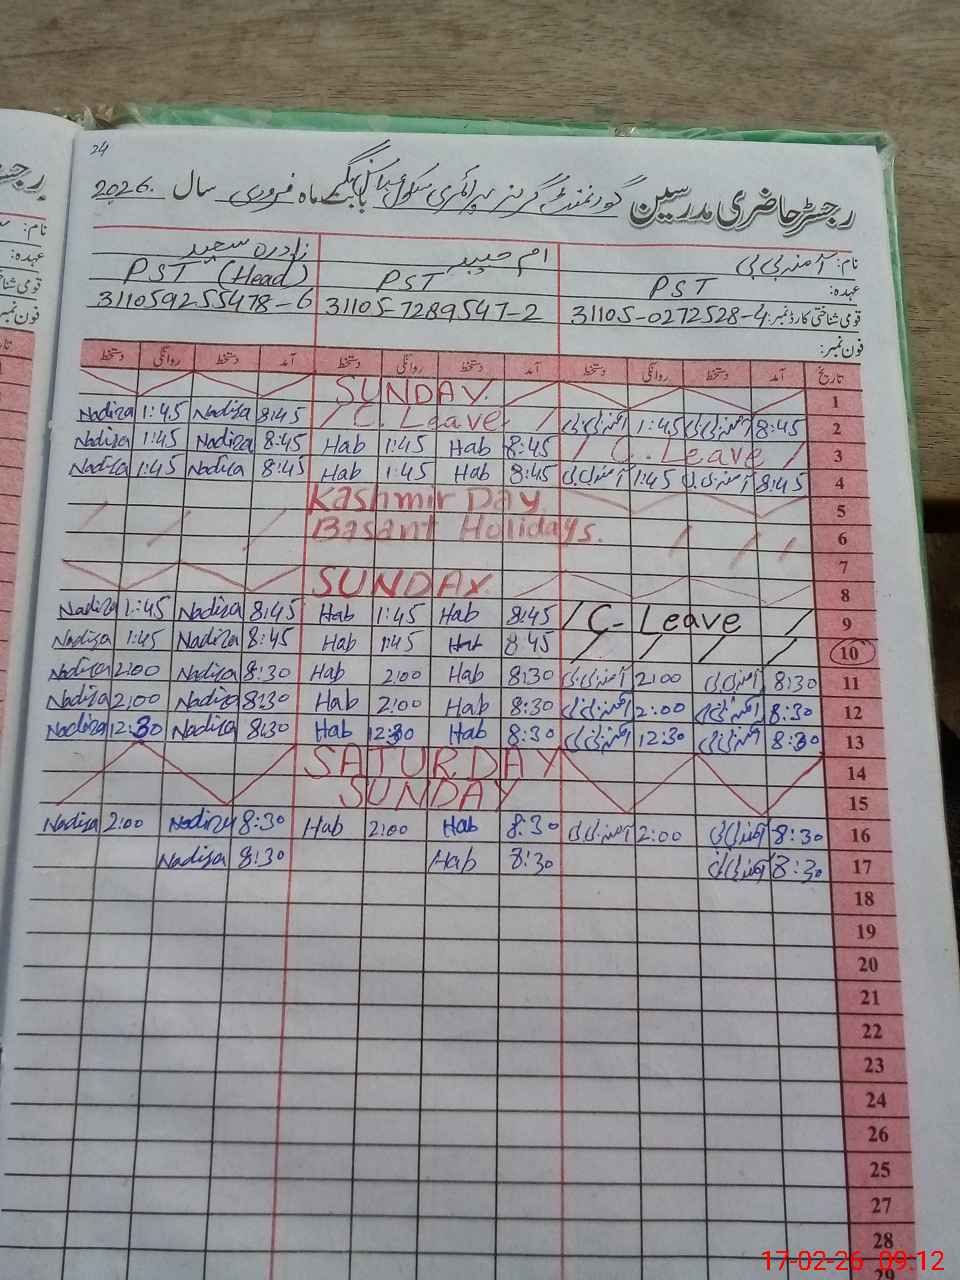 24
رجسٹر حاضری مدرسین گورنمنٹ گرلز پرائمری سکول بابت ماہ فروری سال 2026.
نام: آمنہ بی بی ام حبیبہ نادرہ سعید
عہدہ: PST PST PST (Head)
قومی شناختی کارڈ نمبر: 31105-0272528-4 31105-7289547-2 311059255478-6
فون نمبر:
تاریخ آمد دستخط روانگی دستخط آمد دستخط روانگی دستخط آمد دستخط روانگی دستخط
SUNDAY. 1
Nadiza 1:45 Nadiza 8:45 / C. Leave. / آمنہ بی بی 1:45 آمنہ بی بی 8:45 2
Nadiza 1:45 Nadiza 8:45 Hab 1:45 Hab 8:45 / C. Leave / 3
Nadiza 1:45 Nadiza 8:45 Hab 1:45 Hab 8:45 آمنہ بی بی 1:45 آمنہ بی بی 8:45 4
Kashmir Day. 5
Basant Holidays. 6
7
SUNDAY. 8
Nadiza 1:45 Nadiza 8:45 Hab 1:45 Hab 8:45 / C- Leave / 9
Nadiza 1:45 Nadiza 8:45 Hab 1:45 Hab 8:45 / / / / 10
Nadiza 2:00 Nadiza 8:30 Hab 2:00 Hab 8:30 آمنہ بی بی 2:00 آمنہ بی بی 8:30 11
Nadiza 2:00 Nadiza 8:30 Hab 2:00 Hab 8:30 آمنہ بی بی 2:00 آمنہ بی بی 8:30 12
Nadiza 12:30 Nadiza 8:30 Hab 12:30 Hab 8:30 آمنہ بی بی 12:30 آمنہ بی بی 8:30 13
SATURDAY 14
SUNDAY 15
Nadiza 2:00 Nadiza 8:30 Hab 2:00 Hab 8:30 آمنہ بی بی 2:00 آمنہ بی بی 8:30 16
Nadiza 8:30 Hab 8:30 آمنہ بی بی 8:30 17
18
19
20
21
22
23
24
26
25
27
28
29
17-02-26 09:12